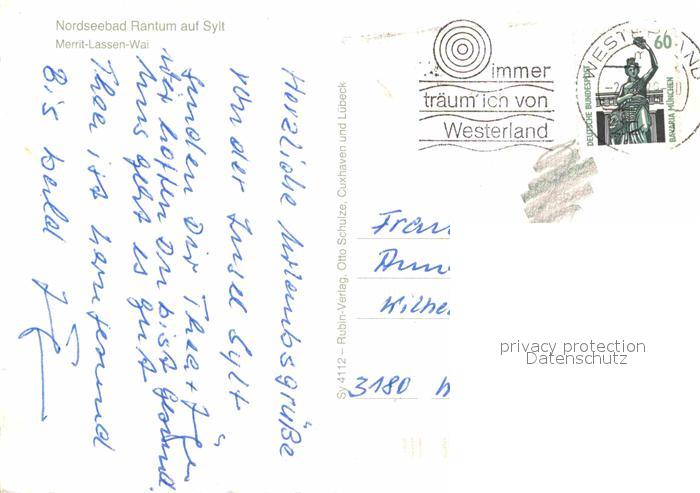 Nordseebad Rantum auf Sylt
Merrit-Lassen-Wai
Herzliche Urlaubsgrüße
von der Insel Sylt
senden Dir Thea +
wir hoffen Du bist gesund.
Uns geht es gut
Thea ist kerngesund
Bis bald
Sy 4112 – Rubin-Verlag, Otto Schulze, Cuxhaven und Lübeck
immer
träum' ich von
Westerland
WESTERLAND
60
DEUTSCHE BUNDESPOST
BAVARIA MÜNCHEN
Frau
3180
privacy protection
Datenschutz